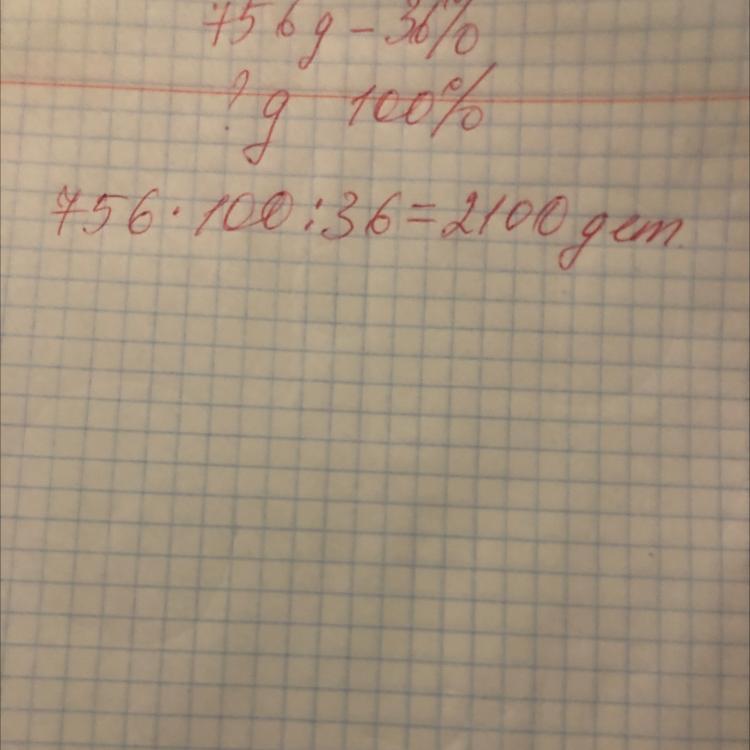 756 д – 36%
? д 100%
756 · 100 : 36 = 2100 дет.